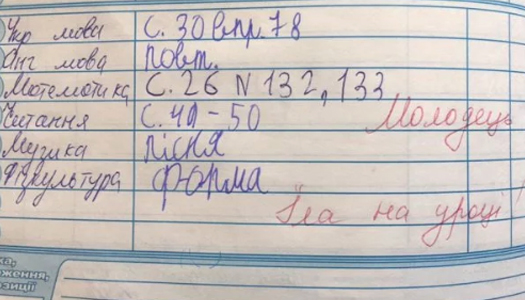 Укр мова С. 30 впр. 78
Анг мова повт.
Математика С. 26 N 132, 133
Читання С. 49-50
Молодець
Музика пісня
Фізкультура форма
Їла на уроці!
ка,
ження,
озиції